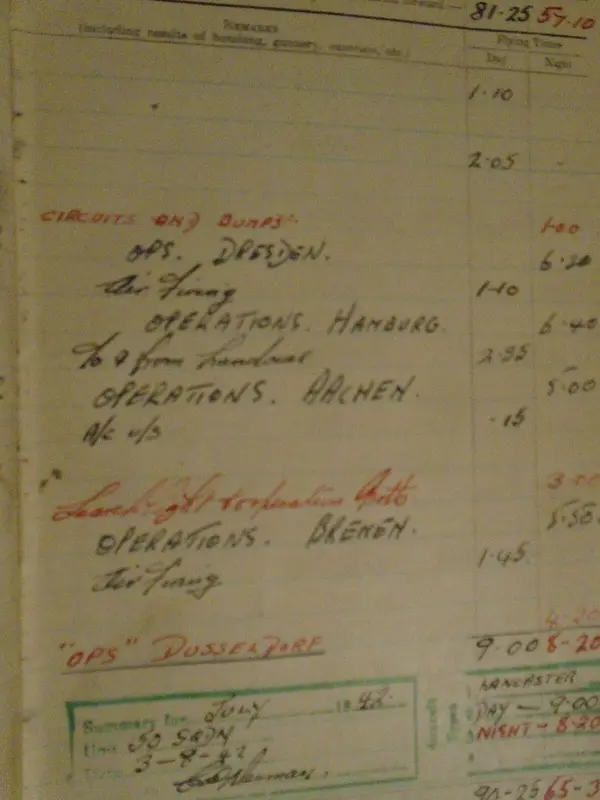 81·25 57·10
REMARKS
(including results of bombing, gunnery, exercises, etc.)
Flying Times
Day Night
1·10
2·05
CIRCUITS AND BUMPS 1·00
OPS. DRESDEN. 6·20
Air Firing 1·10
OPERATIONS. HAMBURG. 6·40
To & from 2·35
OPERATIONS. AACHEN. 5·00
A/C U/S ·15
Searchlight Cooperation 3·00
OPERATIONS. BREMEN. 5·50
Air Firing 1·45
8·20
"OPS" DUSSELDORF 9·00 8-20
Summary for July 1942
Unit 50 SQDN
3-8-42
Aircraft Types
LANCASTER
DAY — 9·00
NIGHT - 8·20
90-25 65-3